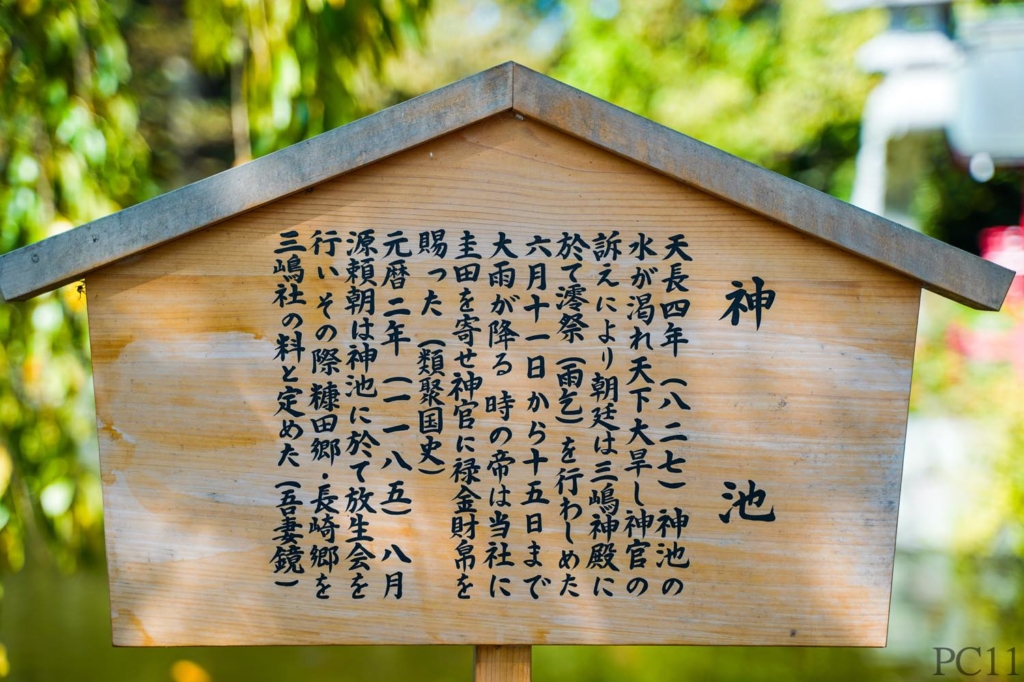 神池
天長四年（八二七）神池の
水が渇れ天下大旱し神官の
訴えにより朝廷は三嶋神殿に
於て澪祭（雨乞）を行わしめた
六月十一日から十五日まで
大雨が降る 時の帝は当社に
圭田を寄せ神官に禄金財帛を
賜った（類聚国史）
元暦二年（一一八五）八月
源頼朝は神池に於て放生会を
行いその際糠田郷・長崎郷を
三嶋社の料と定めた（吾妻鏡）
PC11